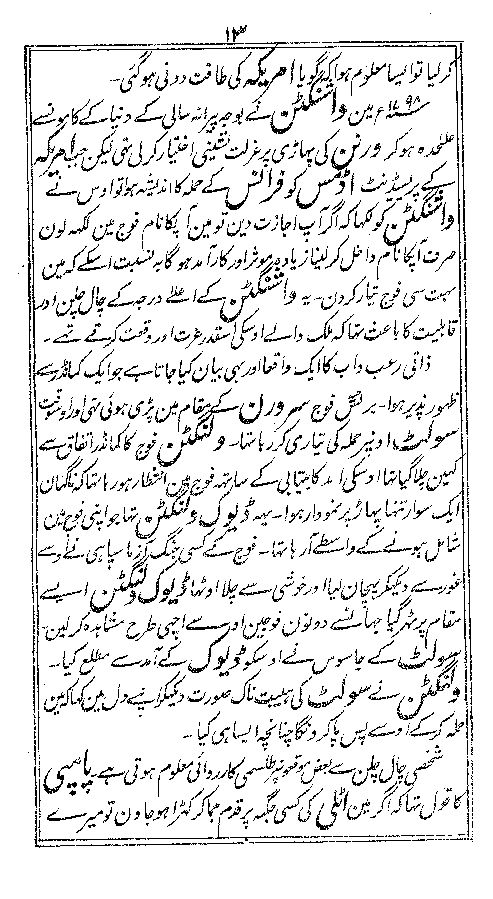 ۱۳
کر لیا تو ایسا معلوم ہوا کہ گویا امریکہ کی طاقت دونی ہو گئی۔
۱۷۹۸ء مین واشنگٹن نے بوجہ پیرانہ سالی کے دنیا کے کامونسے
علٰحدہ ہو کر ورنن کی پہاڑی پر عزلت نشینی اختیار کر لی تھی لیکن جب امریکہ
کے پریسڈنٹ اڈمس کو فرانس کے حملہ کا اندیشہ ہوا تو اوس نے
واشنگٹن کو لکھا کہ اگر آپ اجازت دین تو مین آپکا نام فوج مین لکھہ لون
صرف آپکا نام داخل کر لینا زیادہ موثر اور کارآمد ہو گا بہ نسبت اسکے کہ مین
بہت سی فوج تیار کردن۔ یہ واشنگٹن کے اعلےٰ درجہ کے چال چلن اور
قابلیت کا باعث تھا کہ ملک والے اوسکی اسقدر عزت اور وقعت کرتے تھے۔
ذاتی رعب داب کا ایک واقعہ اور بہی بیان کیا جاتا ہے جو ایک کمانڈر سے
ظہور پذیر ہوا۔ برٹش فوج سرورن کے مقام مین پڑی ہوئی تہی اور اوسوقت
سولٹ اونپر حملہ کی تیاری کر رہا تہا۔ ولنگٹن فوج کا کمانڈر اتفاق سے
کہین چلا گیا تہا اوسکی آمد کا بیتابی کے ساتہہ فوج مین انتظار ہو رہا تہا کہ ناگہان
ایک سوار تنہا پہاڑ پر نمودار ہوا۔ یہہ ڈیوک ولنگٹن تہا جو اپنی فوج مین
شامل ہونے کے واسطے آ رہا تہا۔ فوج کے کسی جنگ آزما سپاہی نے اوسے
غور سے دیکہکر پہچان لیا اور خوشی سے چلا اوٹہا ڈیوک ولنگٹن ایسے
مقام پر ٹہر گیا جہانسے دونون فوجین اوسے اچہی طرح مشاہدہ کر لین۔
سولٹ کے جاسوس نے اوسکو ڈیوک کے آمد سے مطلع کیا۔
ولنگٹن نے سولٹ کی ہیبت ناک صورت دیکہکر اپنے دل مین کہا کہ مین
حملہ کر کے اوسے پس پا کر دونگا چنانچہ ایسا ہی کیا۔
شخصی چال چلن سے بعض موقعونپر طلسمی کارروائی معلوم ہوتی ہے پاپسی
کا قول تہا کہ اگر مین اٹلی کی کسی جگہہ پر قدم جما کر کہڑا ہو جاون تو میرے